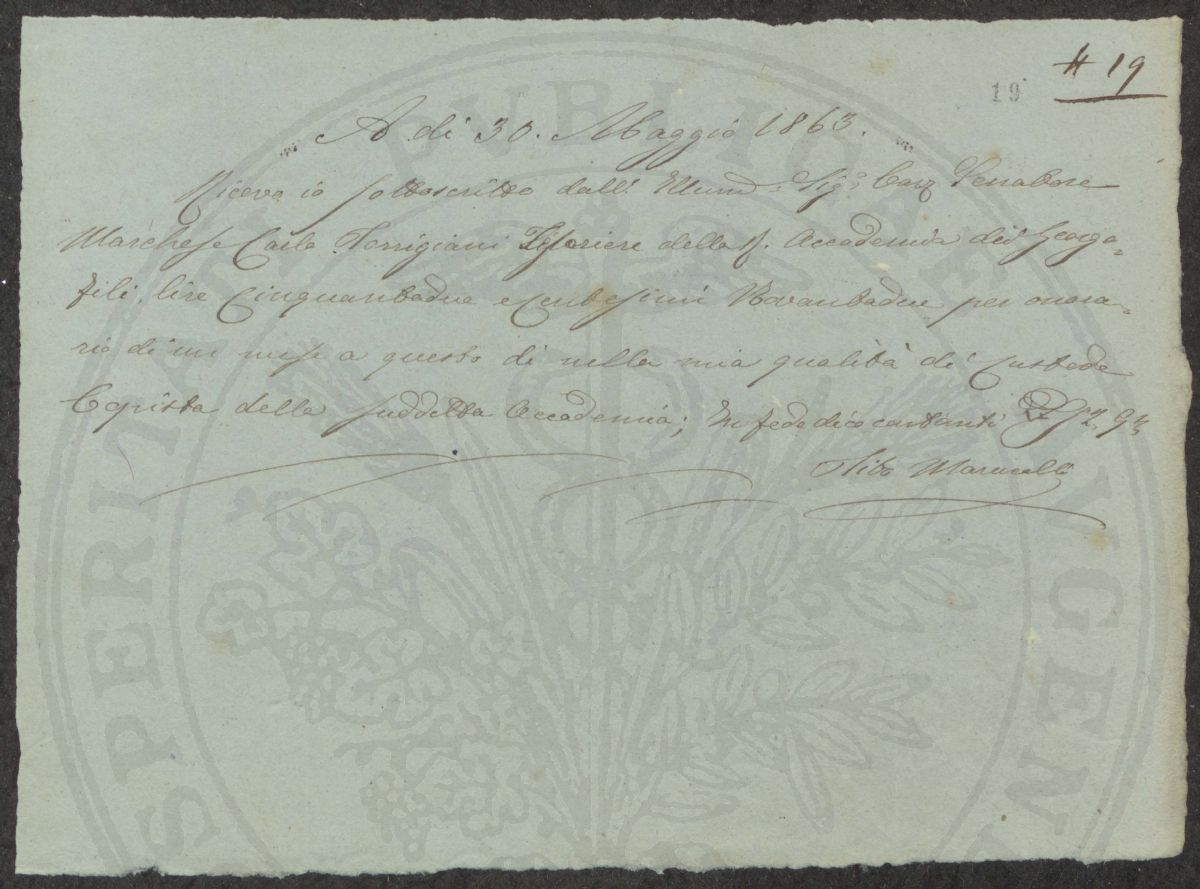 # 19
19
A dì 30. Maggio 1863.
Ricevo io sottoscritto dall' Illmo. Sigr. Cav. Senatore
Marchese Carlo Torrigiani Tesoriere della R. Accademia dei Georgo-
fili, lire Cinquantadue e Centesimi Novantadue per onora-
rio di un mese a questo dì nella mia qualità di Custode
Copista della suddetta Accademia; In fede dico contanti £ 52. 92
Tito Marucelli
PROSPERITATI PUBLICAE AUGENDAE